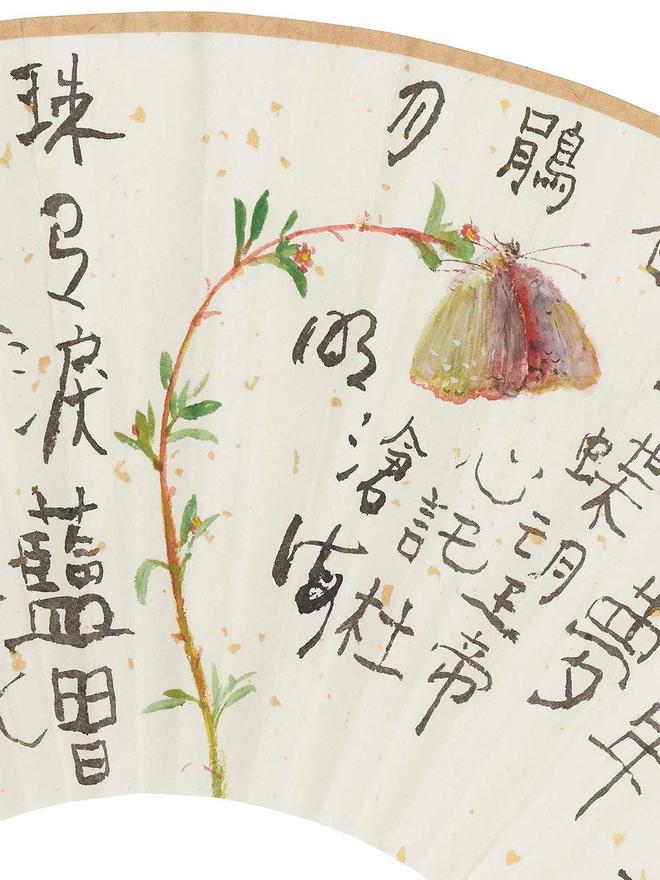 夢
蝶望帝
心託杜
鵑
月明滄海
珠有淚藍田日